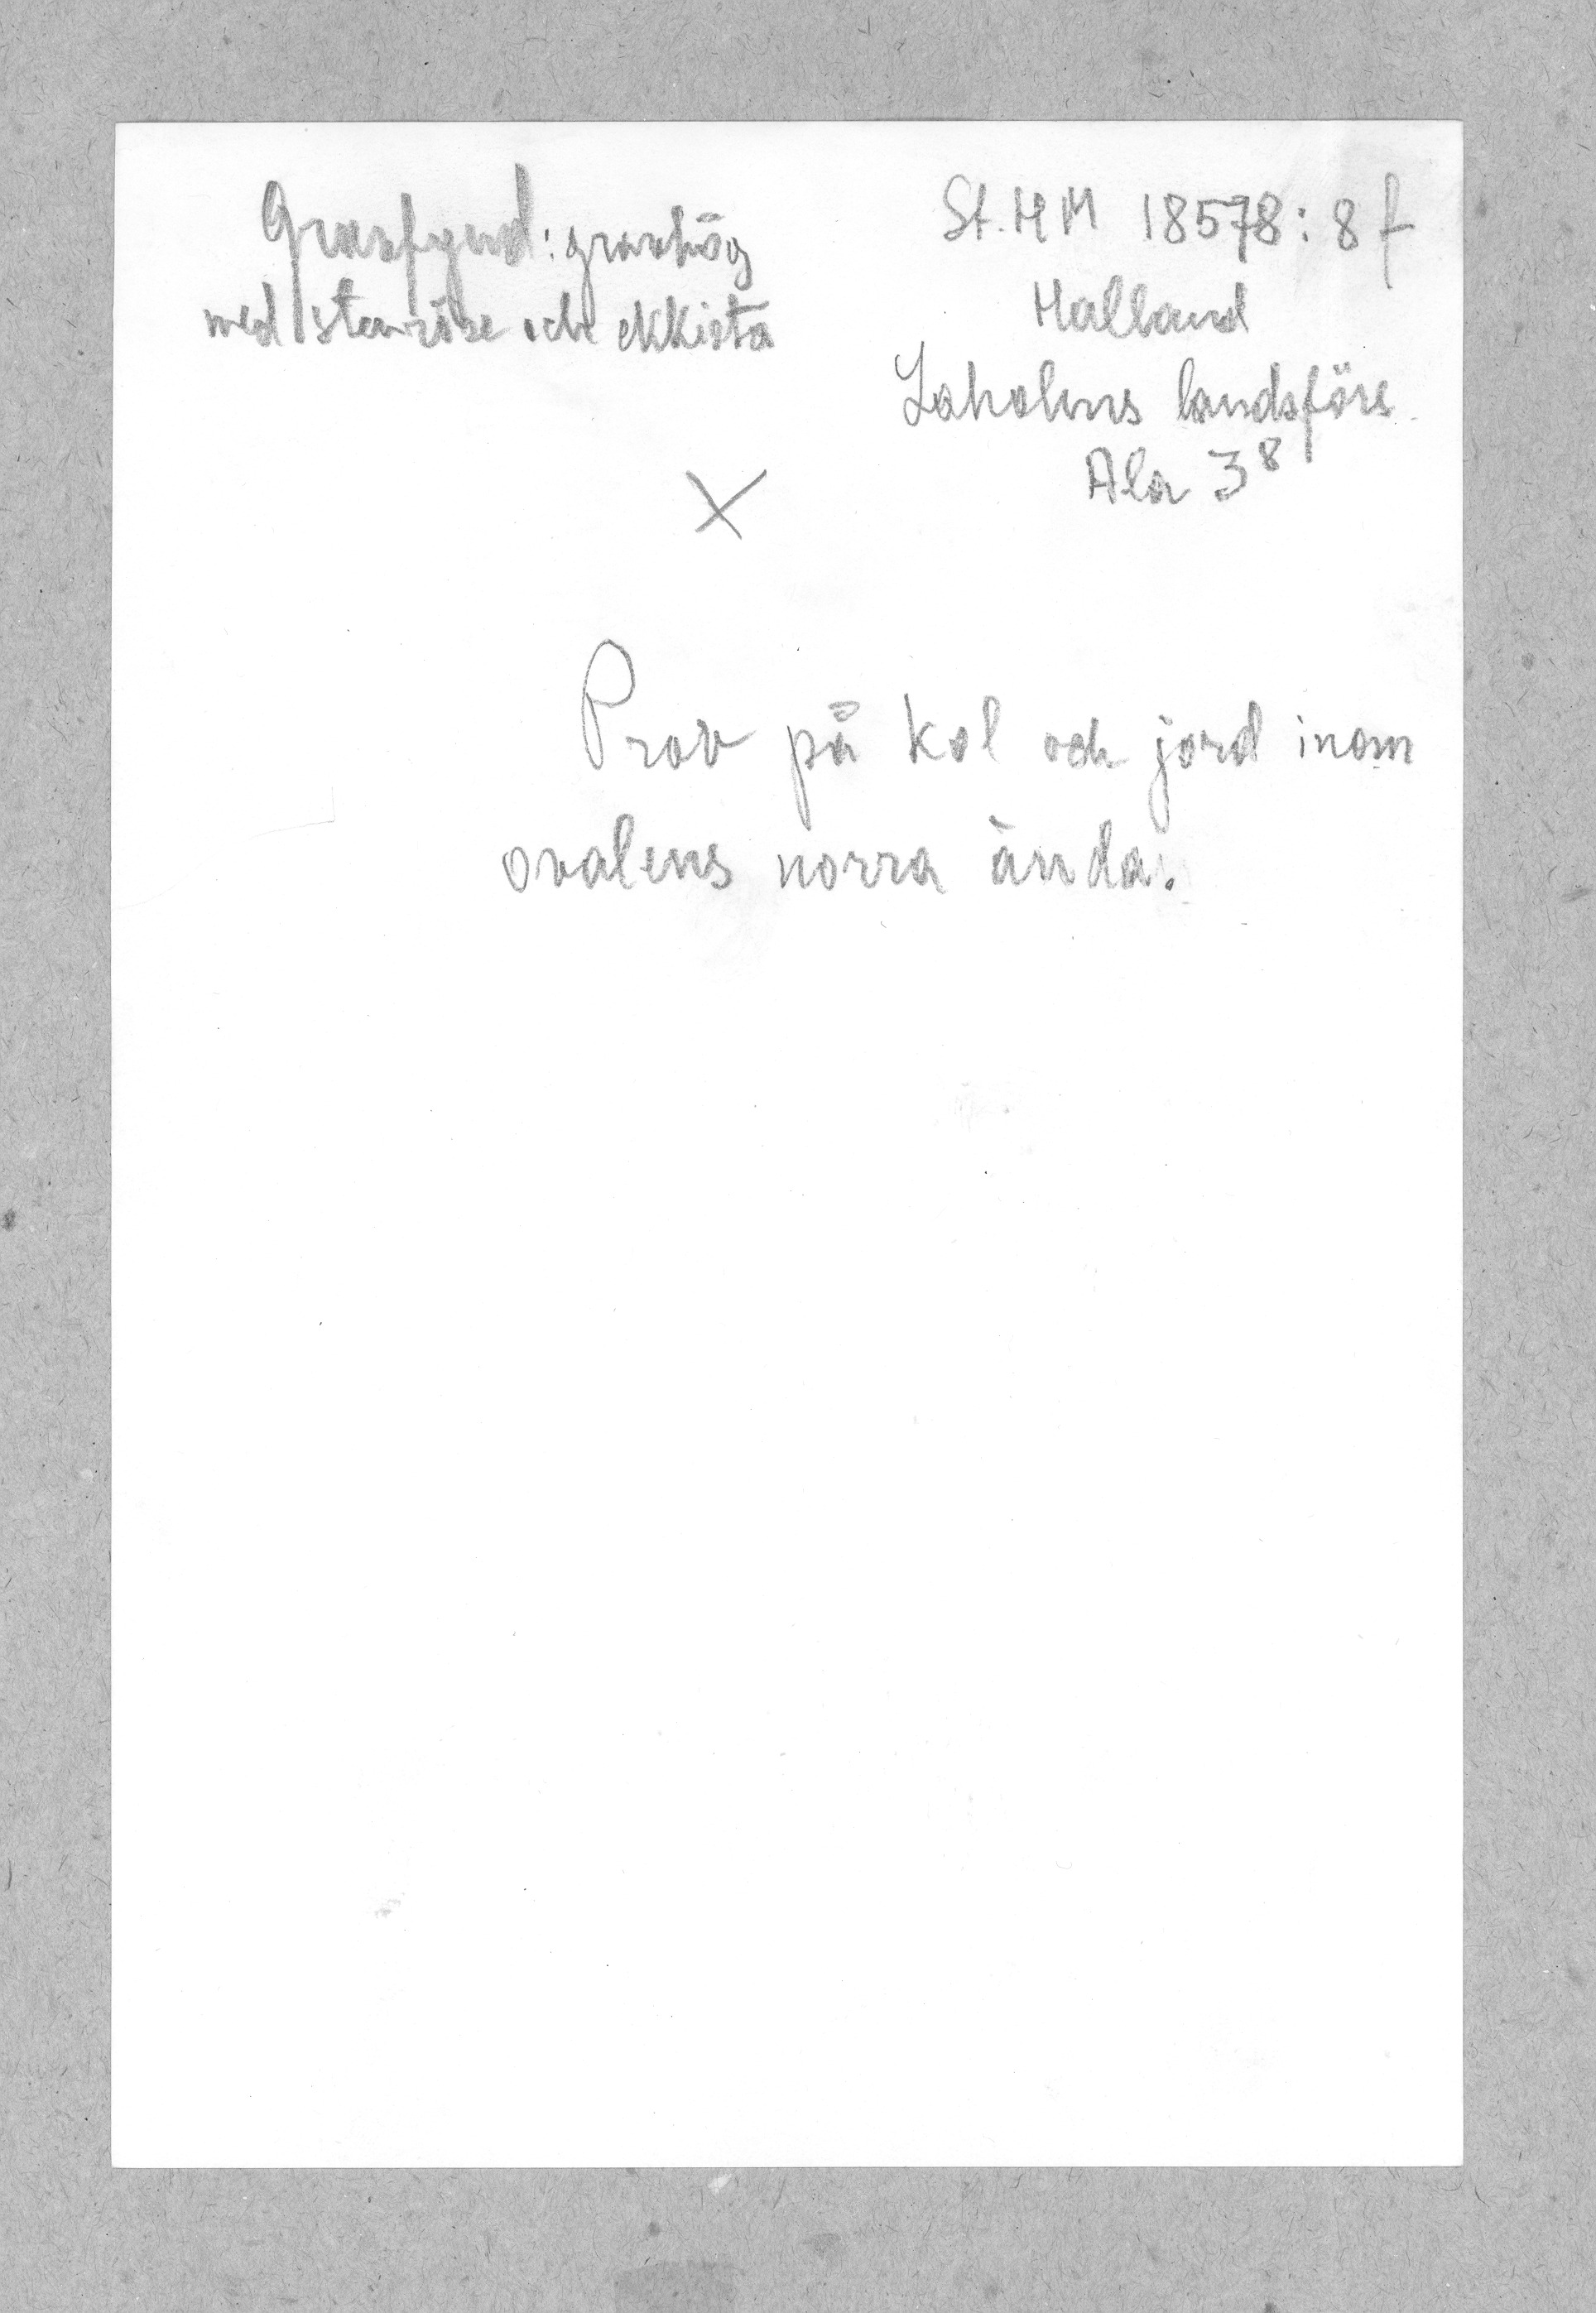 Gravfynd: gravhög
med stenröse och ekkista
St. H M 18578: 8 f
Halland
Laholms landsförs.
Ala 3⁸
X
Prov på kol och jord inom
ovalens norra ända.